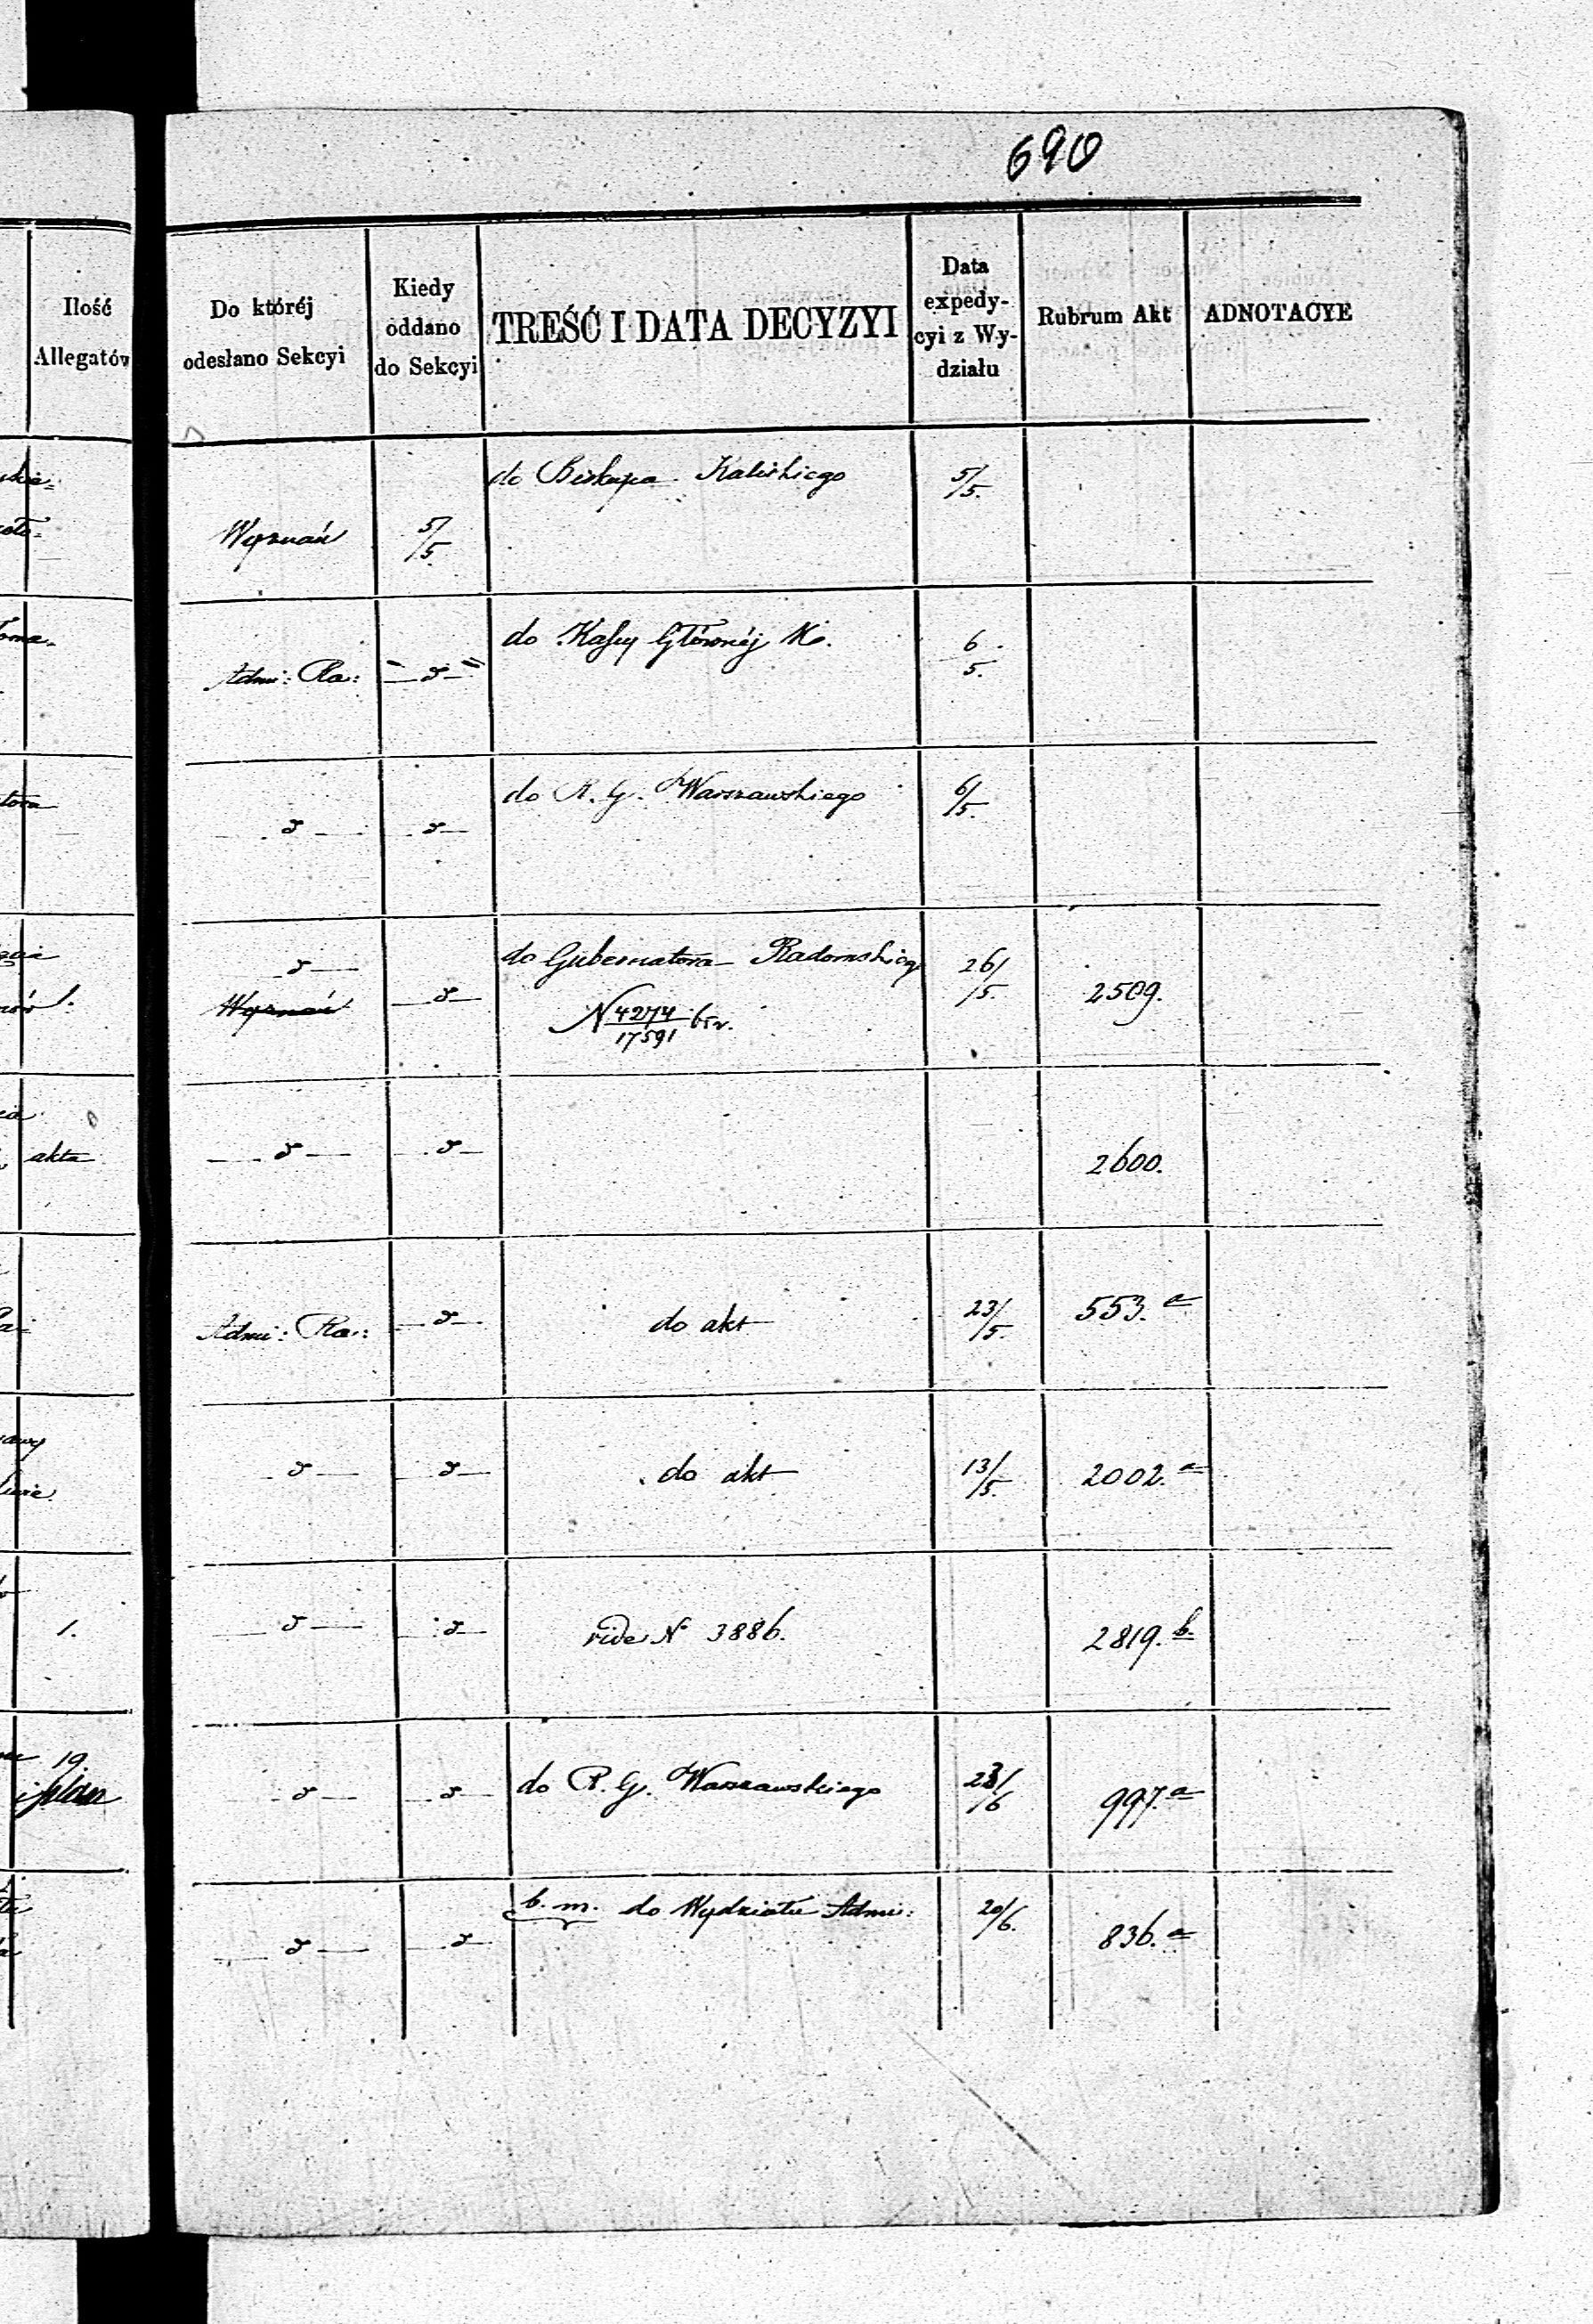 690
Ilość
Allegatów
Do któréj
odesłano Sekcyi
Kiedy
oddano
do Sekcyi
TREŚĆ I DATA DECYZYI
Data
expedy-
cyi z Wy-
działu
Rubrum Akt
ADNOTACYE
do Biskupa Kaliskiego 5/5.
Wyznań 5/5.
do Kassy Głównéj K. 6/5.
Admi: Ra: — d —
do R. G. Warszawskiego 6/5.
— d — — d —
do Gubernatora Radomskiego 26/5.
— d —
1. Wyznań — d — 2509.
N 4274/17591
akta — d — — d — 2600.
Admi: Ra: — d — do akt 23/5. 553. a
— d — — d — do akt 13/5. 2002. a
1. — d — — d — vide N° 3886. 2819. b.
19
i plan — d — — d — do R. G. Warszawskiego 23/6 997. a
b. m. do Wydziału Admi: 20/6.
— d — — d — 836. a